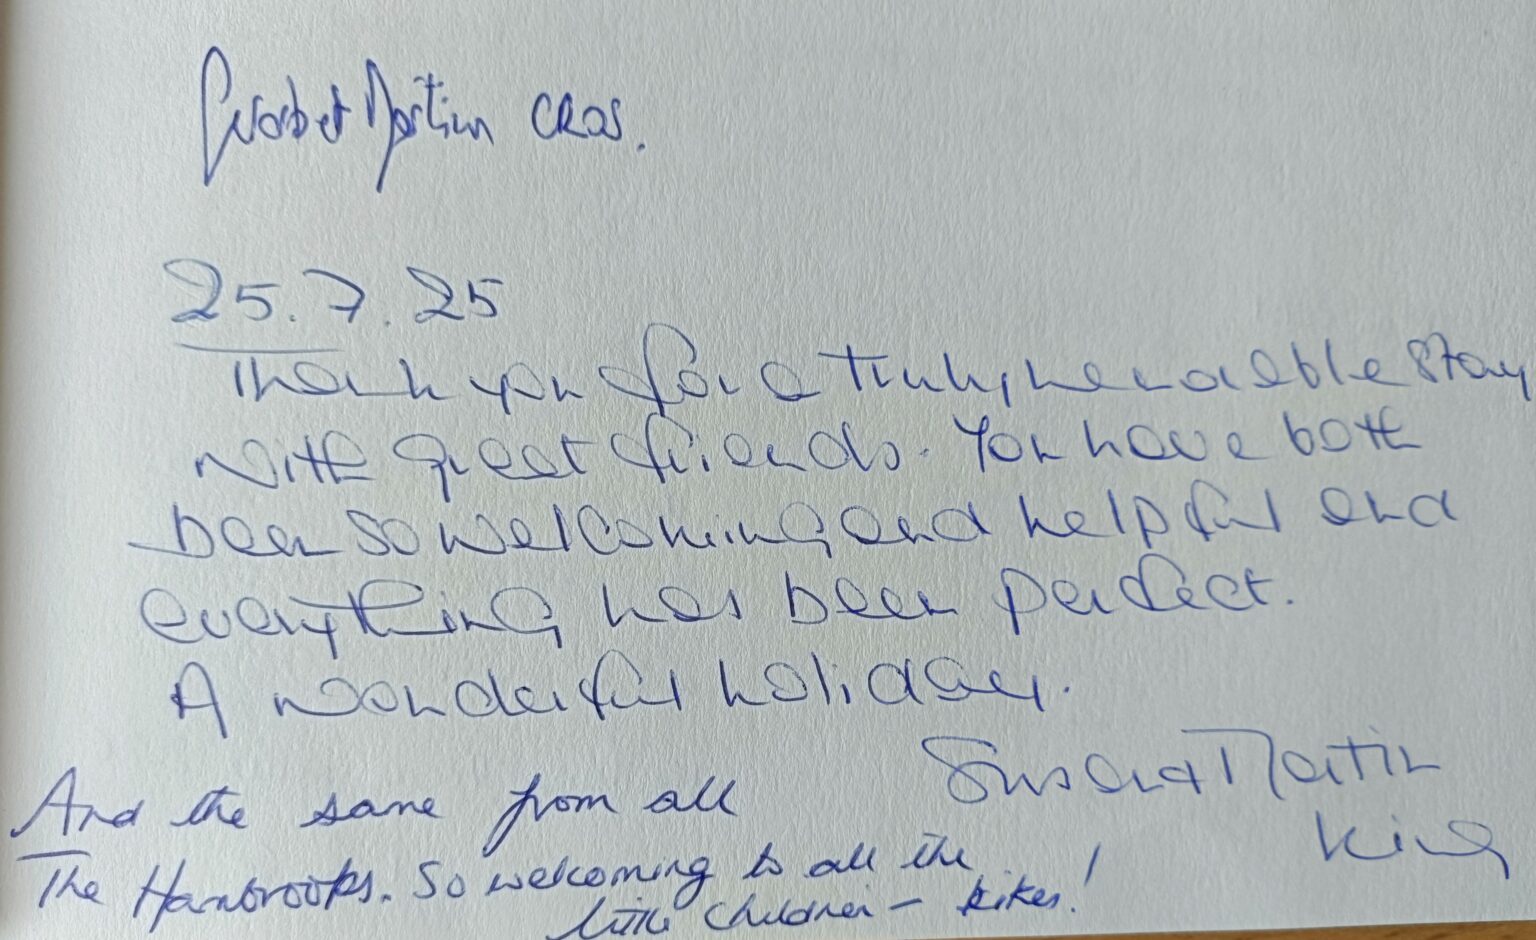 Martin CROS.
25.7.25
Thank you for a truly memorable stay
with great friends. You have both
been so welcoming and helpful and
everything has been perfect.
A wonderful holiday.
Susan & Martin
King
And the same from all
The Hambrooks. So welcoming to all the
little children –